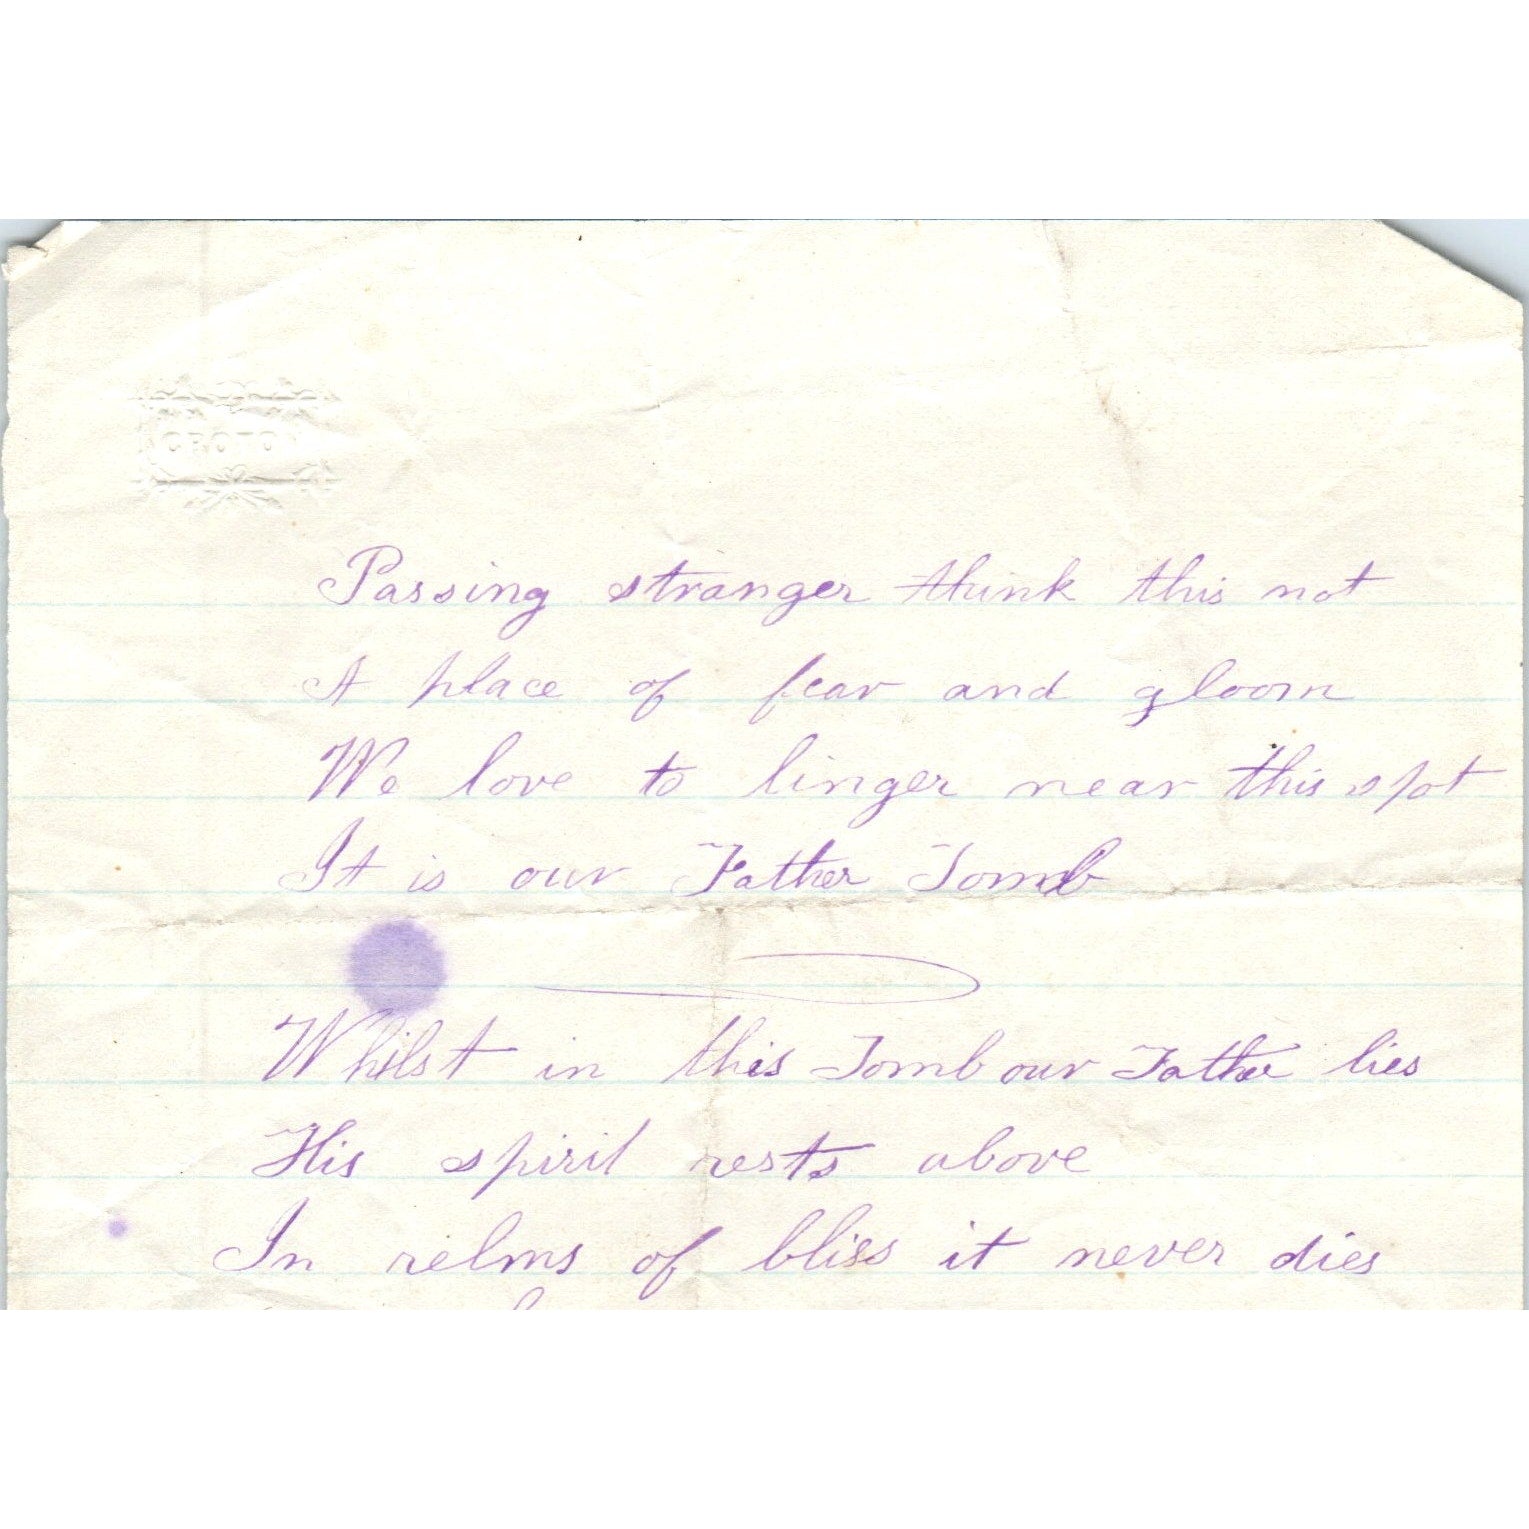 CROTO
Passing stranger think this not
A place of fear and gloom
We love to linger near this spot
It is our Father Tomb
Whilst in this Tomb our Father lies
His spirit rests above
In relms of bliss it never dies